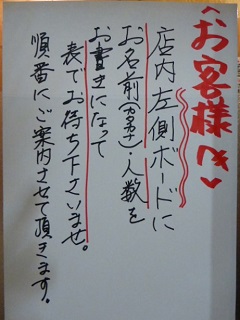 お客様へ♥
店内左側ボードに
お名前(カタカナ)・人数を
お書きになって
表でお待ち下さいませ。
順番にご案内させて頂きます。